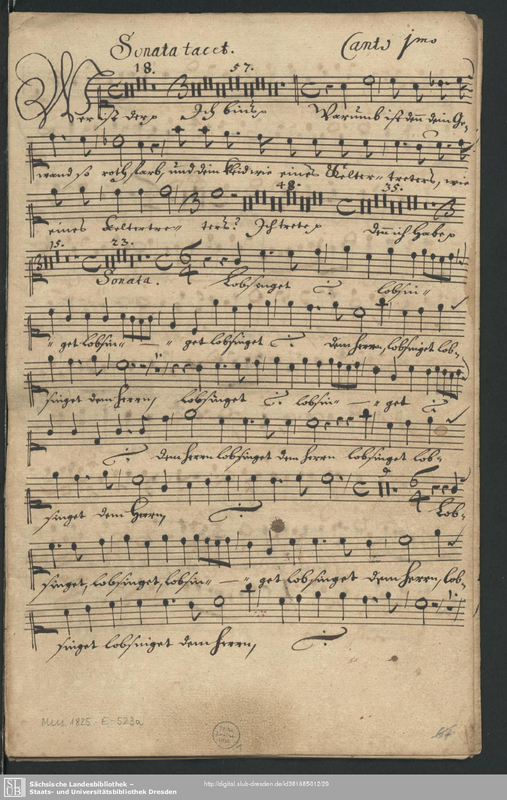 Sonata tacet. Canto 1mo
18. 57.
Wer ist der Ich bins Warumb ist den dein Ge-
wand so roth farb, und dein Kleid wie eines Kelter- treters, wie
48. 35.
eines Keltertre- ters? Ich trete den ich habe
15. 23.
Sonata. Lobsinget lobsin-
get lobsin- get lobsinget dem herrn, lobsinget lob-
singet dem herrn, lobsinget lobsin- get
dem herrn lobsinget dem herrn lobsinget lob-
singet dem Herrn, Lob-
singet, lobsinget, lobsin- get lobsinget dem herrn, lob-
singet lobsinget dem herrn,
Mus. 1825-E-523a
SLUB
Sächsische Landesbibliothek –
Staats- und Universitätsbibliothek Dresden
http://digital.slub-dresden.de/id381685012/29